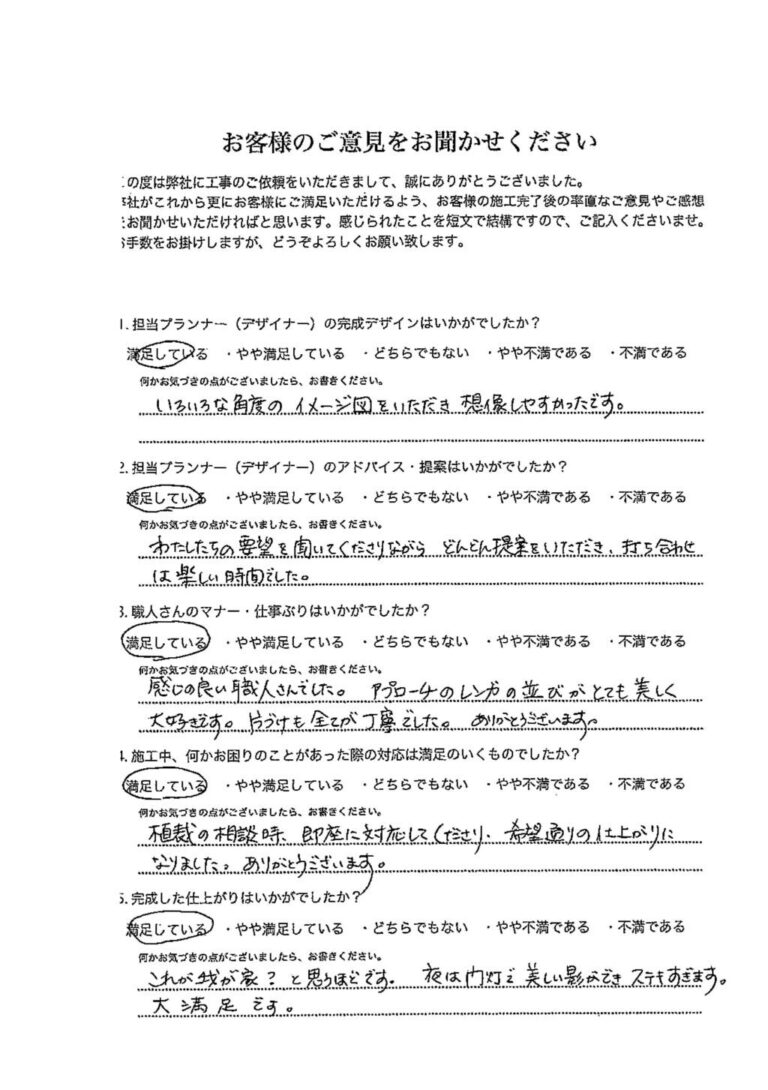 お客様のご意見をお聞かせください
の度は弊社に工事のご依頼をいただきまして、誠にありがとうございました。
社がこれから更にお客様にご満足いただけるよう、お客様の施工完了後の率直なご意見やご感想
お聞かせいただければと思います。感じられたことを短文で結構ですので、ご記入くださいませ。
手数をお掛けしますが、どうぞよろしくお願い致します。
1. 担当プランナー（デザイナー）の完成デザインはいかがでしたか？
満足している ・やや満足している ・どちらでもない ・やや不満である ・不満である
何かお気づきの点がございましたら、お書きください。
いろいろな角度の イメージ図をいただき 想像しやすかったです。
2. 担当プランナー（デザイナー）のアドバイス・提案はいかがでしたか？
満足している ・やや満足している ・どちらでもない ・やや不満である ・不満である
何かお気づきの点がございましたら、お書きください。
わたしたちの要望を聞いてくださりながら どんどん提案をいただき、打ち合わせ
は楽しい時間でした。
3. 職人さんのマナー・仕事ぶりはいかがでしたか？
満足している ・やや満足している ・どちらでもない ・やや不満である ・不満である
何かお気づきの点がございましたら、お書きください。
感じの良い職人さんでした。 アプローチのレンガの並びがとても美しく
大好きです。片づけも全てが丁寧でした。 ありがとうございます。
4. 施工中、何かお困りのことがあった際の対応は満足のいくものでしたか？
満足している ・やや満足している ・どちらでもない ・やや不満である ・不満である
何かお気づきの点がございましたら、お書きください。
植裁の相談時、即座に対応してくださり、希望通りの仕上がりに
なりました。ありがとうございます。
5. 完成した仕上がりはいかがでしたか？
満足している ・やや満足している ・どちらでもない ・やや不満である ・不満である
何かお気づきの点がございましたら、お書きください。
これが我が家？と思うほどです。 夜は門灯で美しい影ができ ステキすぎます。
大満足です。